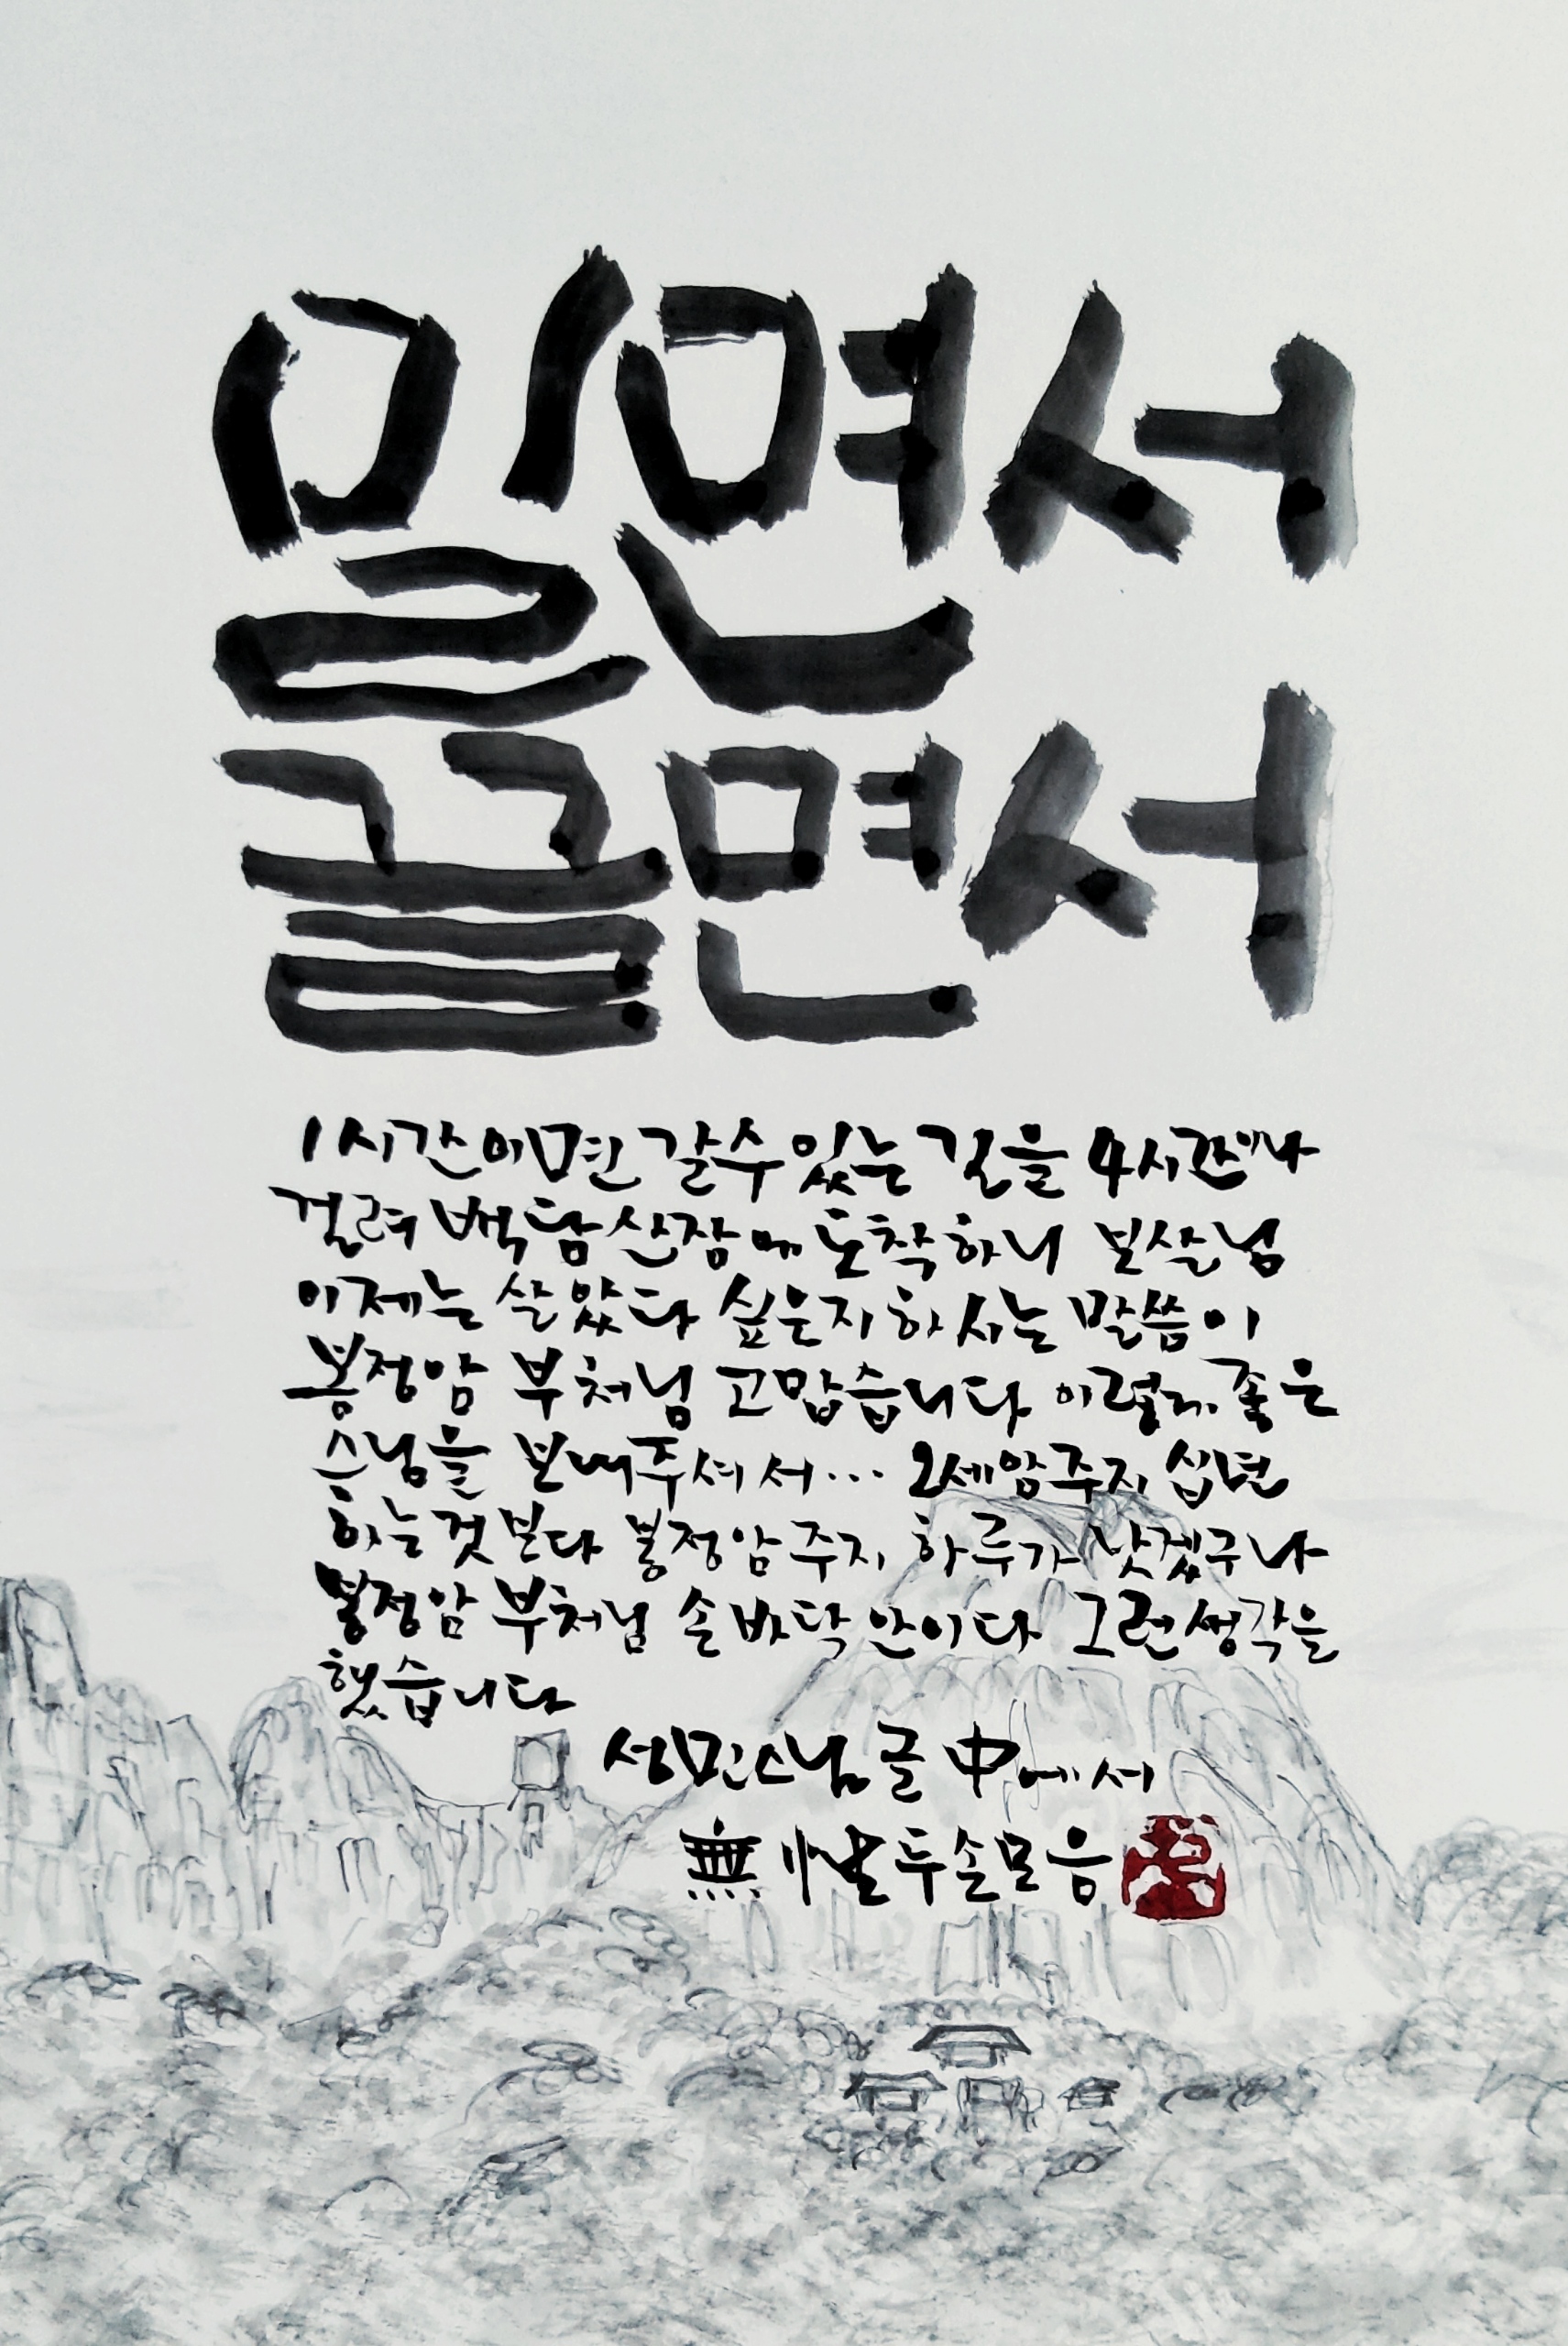 밀면서
끌면서
1시간이면 갈수있는 길을 4시간이나
걸려 백담산장에 도착하니 보살님
이제는 살았다 싶은지 하시는 말씀이
봉정암 부처님 고맙습니다 이렇게 좋은
스님을 보내주셔서... 오세암주지 십년
하는것보다 봉정암주지 하루가 낫겠구나
봉정암 부처님 손바닥 안이다 그런생각을
했습니다
성민스님글 中에서
無性 두손모음